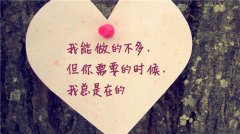 我能做的不多．
但你需要的时候．
我总是在的